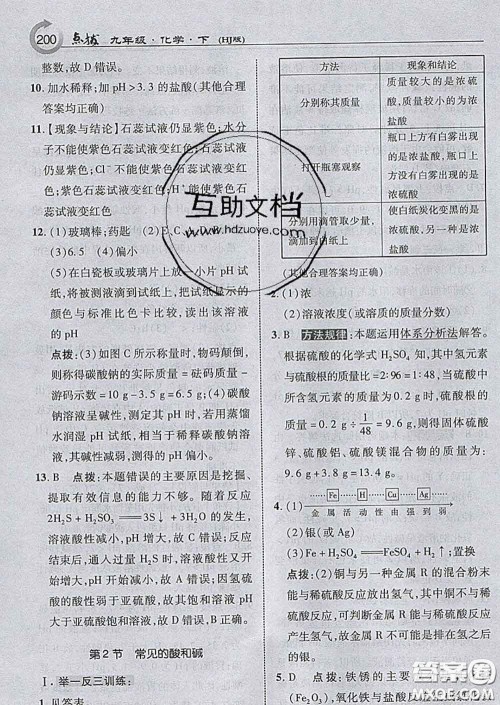 200 点拨 九年级·化学·下 (HJ版)
整数,故 D 错误。
10. 加水稀释;加 pH>3.3 的盐酸(其他合理
答案均正确)
11.【现象与结论】石蕊试液仍显紫色;水分
子不能使紫色石蕊试液变红
紫色石蕊试液仍显紫色;Cl⁻不能使紫色石蕊试液变红
色;紫色石蕊试液变红色;H⁺能使紫色石
蕊试液变红色
12. (1)玻璃棒;药匙
(3)6.5 (4)偏小
(5)在白瓷板或玻璃片上放一小片 pH 试
纸,将被测液滴到试纸上,把试纸显示的
颜色与标准比色卡比较,读出该溶液
的 pH
点拨:(3)如图 C 所示称量时,物码颠倒,
则称得碳酸钠的实际质量=砝码质量-
游码示数=10 g-3.5 g=6.5 g;(4)碳酸
钠溶液呈碱性,测定其 pH 时,若用蒸馏
水润湿 pH 试纸,相当于稀释碳酸钠溶
液,其碱性减弱,测得的 pH 偏小。
13. B 点拨:本题错误的主要原因是挖掘、
提取有效信息的能力不够。随着反应
2H₂S+H₂SO₃══3S↓+3H₂O 的发
生,溶液酸性减小,pH 增大;反应
结束后,通人过量 H₂S 时,溶液酸性又开
始增大,pH 开始减小,故 A 错误;因氢硫
酸的酸性弱于亚硫酸,故其饱和溶液的
酸性比饱和亚硫酸弱,故 D 错误,B 正确。
第 2 节 常见的酸和碱
Ⅰ. 举一反三训练:
1. 见答表。
方法 现象和结论
分别称其质量 质量较大的是浓硫
酸,质量较小的为浓
盐酸
打开瓶塞观察 瓶口上方有白雾出现
的是浓盐酸,瓶口上
方没有白雾出现的是
浓硫酸
分别用滴管取少量,
滴加到白纸上 使白纸炭化变黑的是
浓硫酸,另一种为浓
盐酸
(其他合理答案均正确)
2. (1)浓
(2)溶液浓度(或溶质的质量分数)
3. B 方法规律:本题运用体系分析法解答。
根据硫酸的化学式 H₂SO₄ 知,其中氢元素
与硫酸根的质量比=2:96=1:48,当硫酸
中所含的氢元素的质量为 0.2 g 时,硫酸根
的质量=0.2 g÷1/48=9.6 g,则固体硫酸
锌、硫酸铝、硫酸镁混合物的质量为:
9.6 g+3.8 g=13.4 g。
4. (1) Fe H Cu Ag
金属活动性由强到弱
(2)银(或 Ag)
(3)Fe+H₂SO₄══FeSO₄+H₂↑;置换
点拨:(2)铜与另一种金属 R 的混合粉末
能与稀硫酸反应放出氢气,其中铜不能与
稀硫酸反应放出氢气,说明 R 能与稀硫酸
反应,可判断金属 R 能与稀硫酸反应生
成氢气,故金属 R 不可能是排在氢之后
的银。
5. D 点拨:铁锈的主要成分是氧化铁
(Fe₂O₃),氧化铁与
互助文档
www.hdzuoye.com
答案圈
MXQE.COM